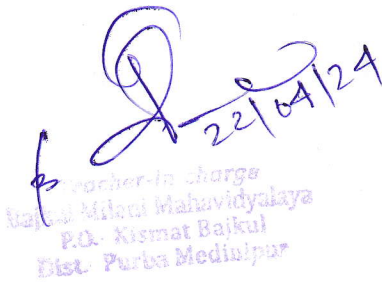 22/04/24
Teacher-in charge
Bajkul Milani Mahavidyalaya
P.O.- Kismat Bajkul
Dist.- Purba Medinipur